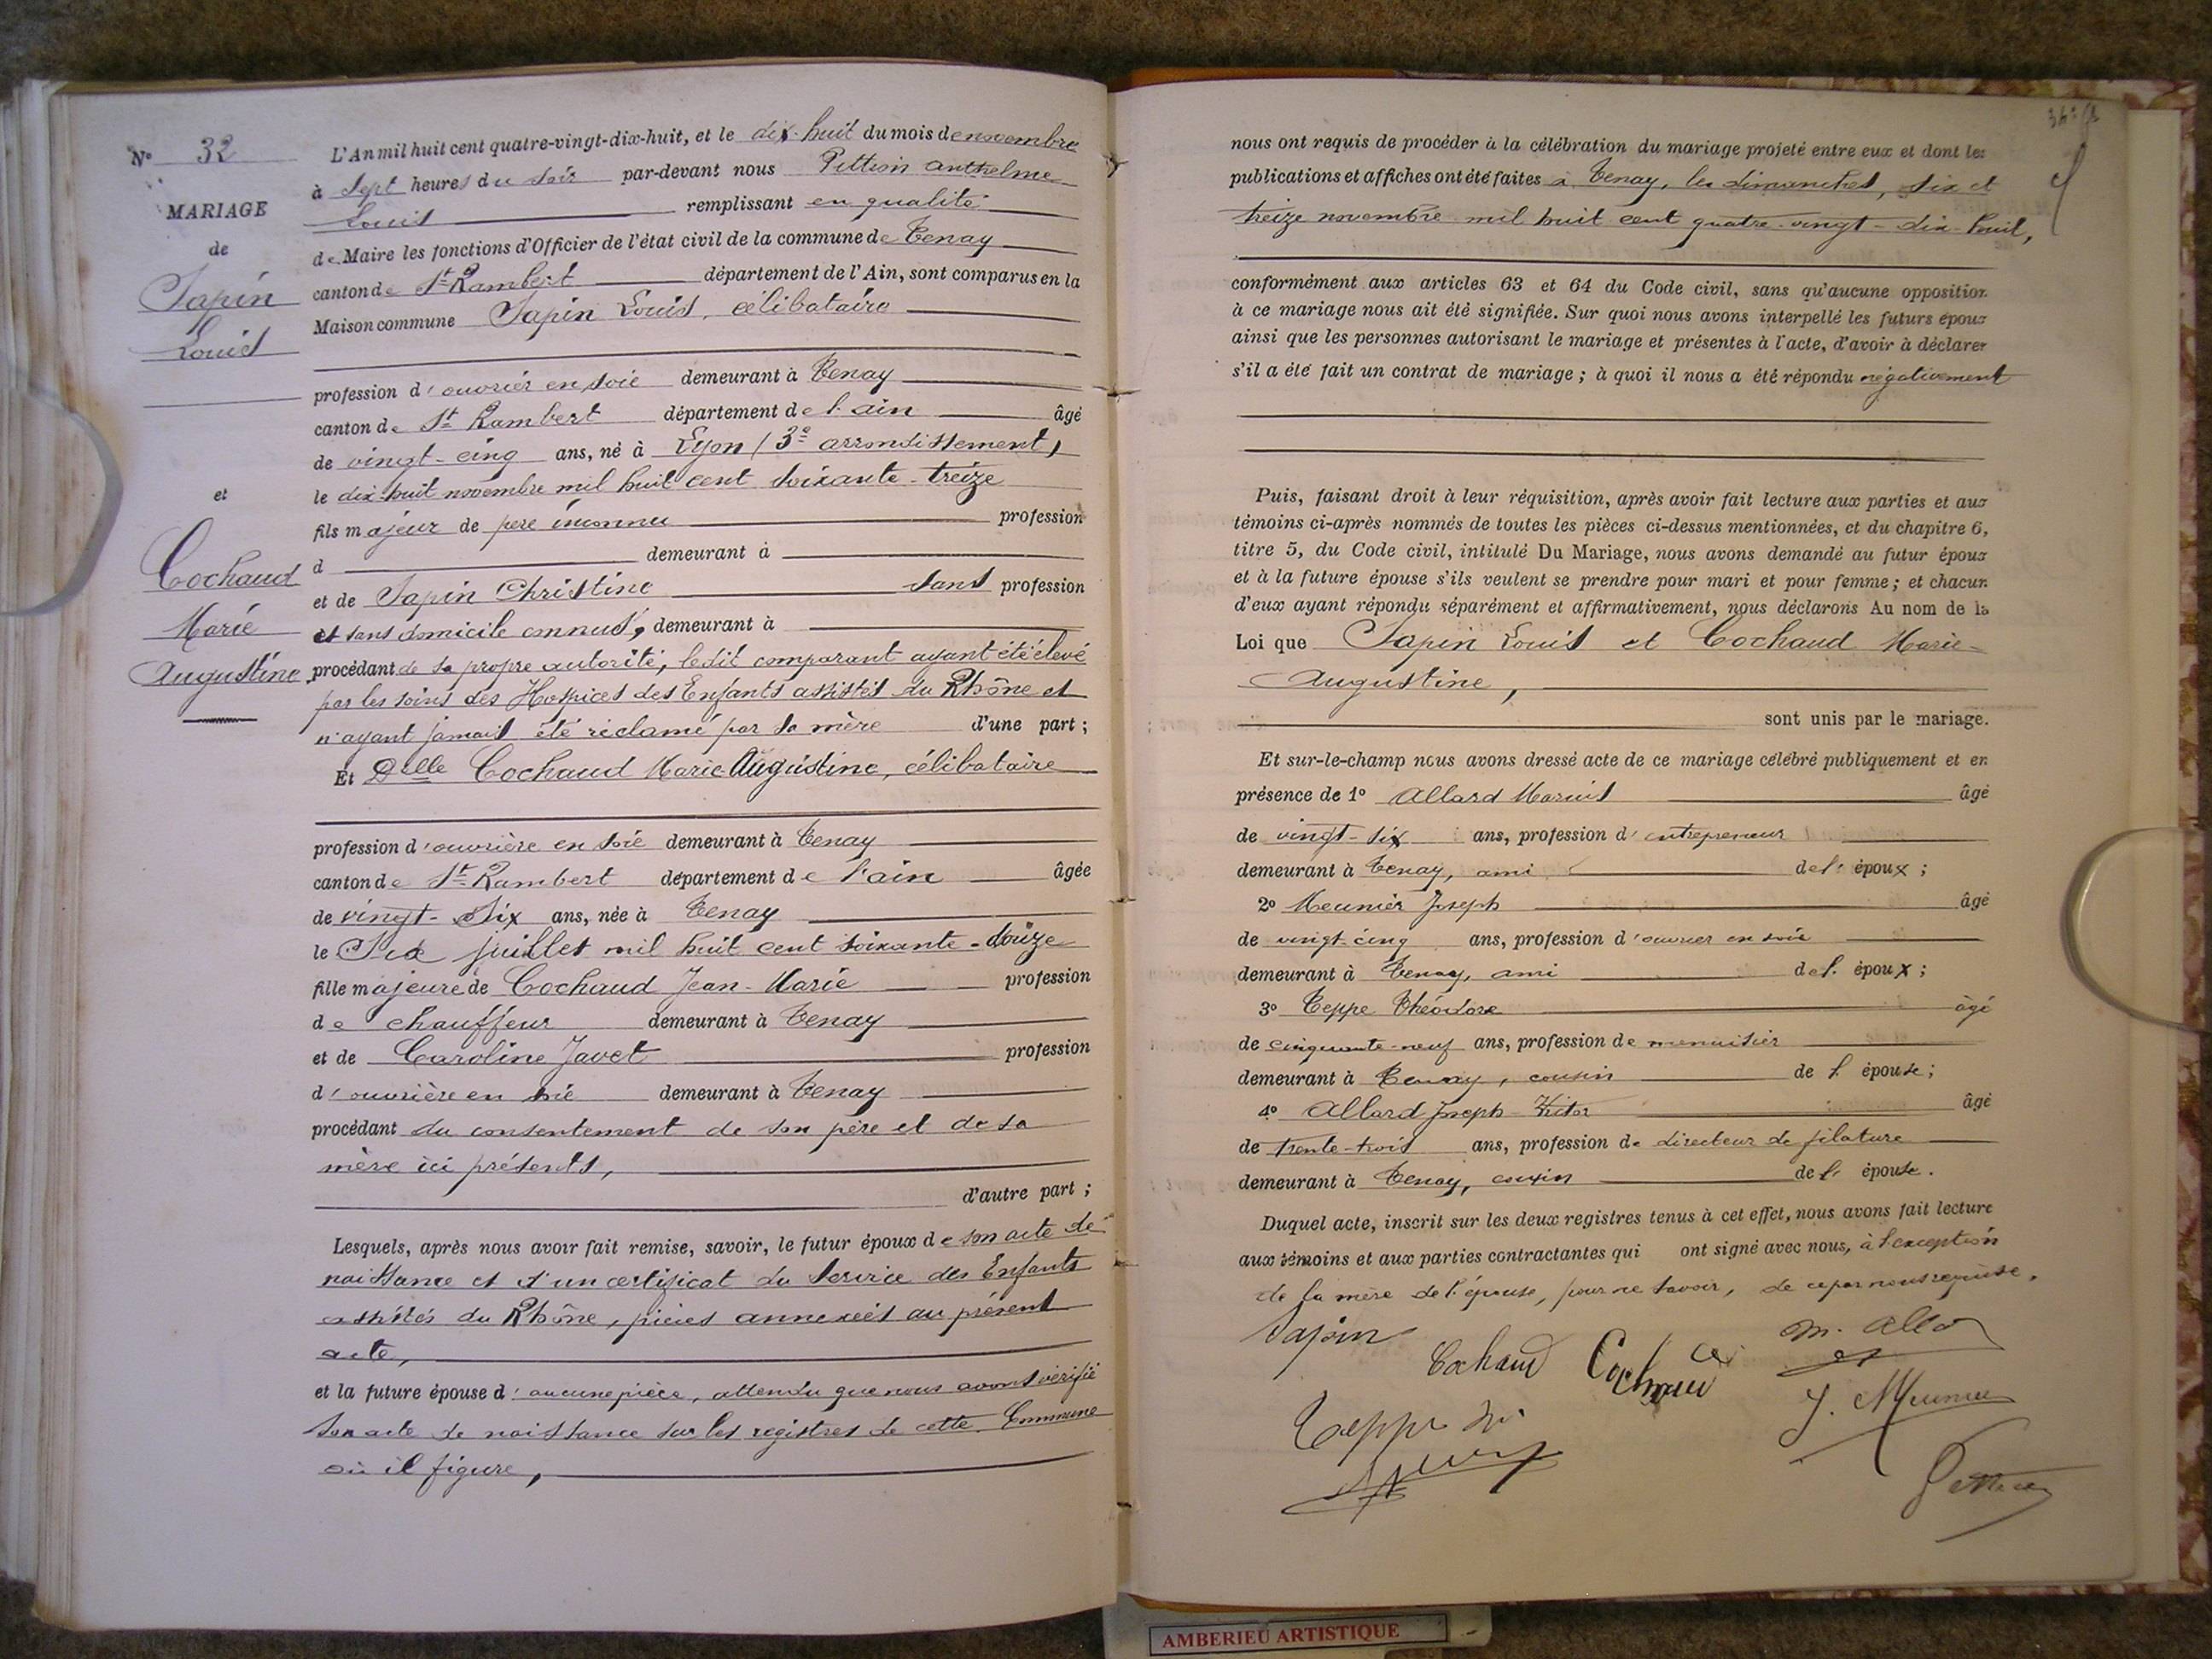 N° 32
MARIAGE
de
Sapin
Louis
et
Cochaud
Marie
Augustine
L'An mil huit cent quatre-vingt-dix-huit, et le dix-huit du mois de novembre
à sept heures du soir par-devant nous Pittion anthelme
Louis remplissant en qualité
de Maire les fonctions d'Officier de l'état civil de la commune de Tenay
canton de St Rambert département de l'Ain, sont comparus en la
Maison commune Sapin Louis, célibataire
profession d'ouvrier en soie demeurant à Tenay
canton de St Rambert département de l'ain âgé
de vingt-cinq ans, né à Lyon (3e arrondissement)
le dix-huit novembre mil huit cent soixante-treize
fils majeur de père inconnu profession
d demeurant à
et de Sapin Christine sans profession
et sans domicile connus, demeurant à
procédant de sa propre autorité, ledit comparant ayant été élevé
par les soins des Hospices des Enfants assistés du Rhône et
n'ayant jamais été réclamé par sa mère d'une part ;
Et Delle Cochaud Marie Augustine, célibataire
profession d'ouvrière en soie demeurant à Tenay
canton de St Rambert département de l'ain âgée
de vingt-six ans, née à Tenay
le Six juillet mil huit cent soixante-douze
fille majeure de Cochaud Jean-Marie profession
de chauffeur demeurant à Tenay
et de Caroline Javet profession
d'ouvrière en soie demeurant à Tenay
procédant du consentement de son père et de sa
mère ici présents,
d'autre part ;
Lesquels, après nous avoir fait remise, savoir, le futur époux de son acte de
naissance et d'un certificat du Service des Enfants
assistés du Rhône, pièces annexées au présent
acte,
et la future épouse d'aucune pièce, attendu que nous avons vérifié
son acte de naissance sur les registres de cette Commune
où il figure,
nous ont requis de procéder à la célébration du mariage projeté entre eux et dont les
publications et affiches ont été faites à Tenay, les dimanches, six et
treize novembre mil huit cent quatre-vingt-dix-huit,
conformément aux articles 63 et 64 du Code civil, sans qu'aucune opposition
à ce mariage nous ait été signifiée. Sur quoi nous avons interpellé les futurs époux
ainsi que les personnes autorisant le mariage et présentes à l'acte, d'avoir à déclarer
s'il a été fait un contrat de mariage ; à quoi il nous a été répondu négativement
Puis, faisant droit à leur réquisition, après avoir fait lecture aux parties et aux
témoins ci-après nommés de toutes les pièces ci-dessus mentionnées, et du chapitre 6,
titre 5, du Code civil, intitulé Du Mariage, nous avons demandé au futur époux
et à la future épouse s'ils veulent se prendre pour mari et pour femme ; et chacun
d'eux ayant répondu séparément et affirmativement, nous déclarons Au nom de la
Loi que Sapin Louis et Cochaud Marie-
Augustine,
sont unis par le mariage.
Et sur-le-champ nous avons dressé acte de ce mariage célébré publiquement et en
présence de 1° Allard Marius âgé
de vingt-six ans, profession d'entrepreneur
demeurant à Tenay, ami de l'époux ;
2° Meunier Joseph âgé
de vingt-cinq ans, profession d'ouvrier en soie
demeurant à Tenay, ami de l'époux ;
3° Teppe Théodore âgé
de cinquante-neuf ans, profession de menuisier
demeurant à Tenay, cousin de l'épouse ;
4° Allard Joseph Victor âgé
de trente-trois ans, profession de directeur de filature
demeurant à Tenay, cousin de l'épouse.
Duquel acte, inscrit sur les deux registres tenus à cet effet, nous avons fait lecture
aux témoins et aux parties contractantes qui ont signé avec nous, à l'exception
de la mère de l'épouse, pour ne savoir, de ce par nous requise.
Sapin
Cochaud
Teppe
J. Meunier
AMBERIEU ARTISTIQUE